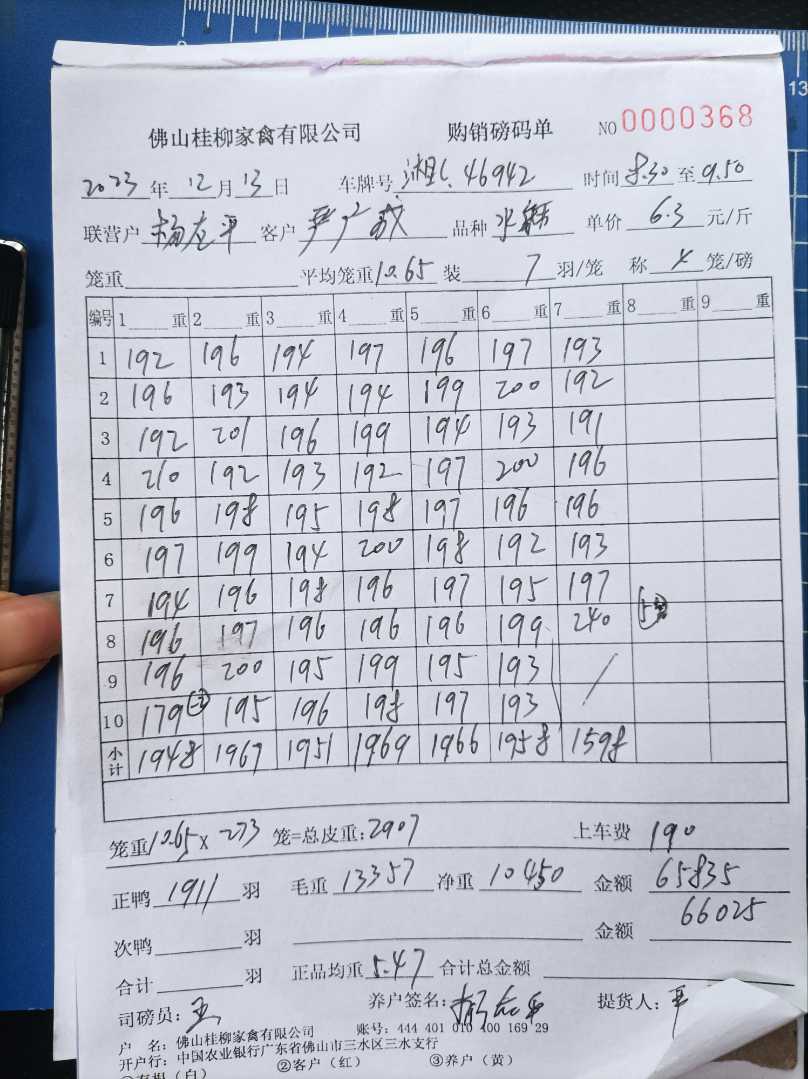 佛山桂柳家禽有限公司 购销磅码单 NO 0000368
2023年12月13日 车牌号 湘L.46942 时间 8.30至9.50
联营户 杨左平 客户 严广成 品种 水鸭 单价 6.3 元/斤
笼重 平均笼重10.65 装 7 羽/笼 称 4 笼/磅
编号 1 重 2 重 3 重 4 重 5 重 6 重 7 重 8 重 9 重
1 192 196 194 197 196 197 193
2 196 193 194 194 199 200 192
3 192 201 196 199 194 193 191
4 210 192 193 192 197 200 196
5 196 198 195 198 197 196 196
6 197 199 194 200 198 192 193
7 194 196 198 196 197 195 197
8 196 197 196 196 196 199 240
9 196 200 195 199 195 193 /
10 179 195 196 198 197 193
小计 1948 1967 1951 1969 1966 1958 1598
笼重10.65×273 笼=总皮重:2907 上车费 190
正鸭 1911 羽 毛重 13357 净重 10450 金额 65835
次鸭 羽 金额 66025
合计 羽 正品均重 5.47 合计总金额
司磅员: 养户签名: 提货人: 严
户 名: 佛山桂柳家禽有限公司 账号: 444 401 010 400 169 29
开户行: 中国农业银行广东省佛山市三水区三水支行
①存根（白） ②客户（红） ③养户（黄）